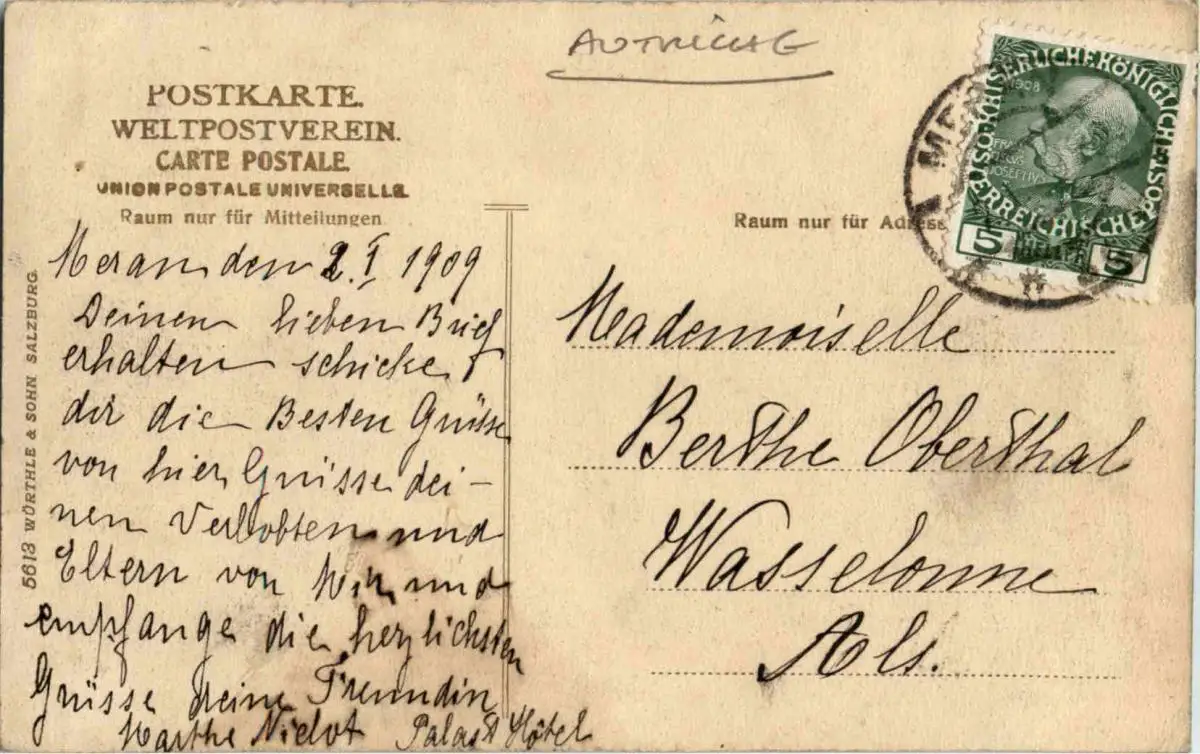 AUTRICHE
POSTKARTE.
WELTPOSTVEREIN.
CARTE POSTALE.
UNION POSTALE UNIVERSELLE.
Raum nur für Mitteilungen
Raum nur für Adresse
KAISERLICHE KÖNIGLICHE ÖSTERREICHISCHE POST
1908
5 HELLER 5
5613 WÖRTHLE & SOHN SALZBURG.
Meran den 2. I 1909
Deinen lieben Brief
erhalten schicke
dir die Besten Grüsse
von hier Grüsse dei-
nen Verlobten und
Eltern von mir und
empfange die herzlichsten
Grüsse deine Freundin
Marthe Palast Hôtel
Mademoiselle
Berthe Oberthal
Wasselonne
Als.